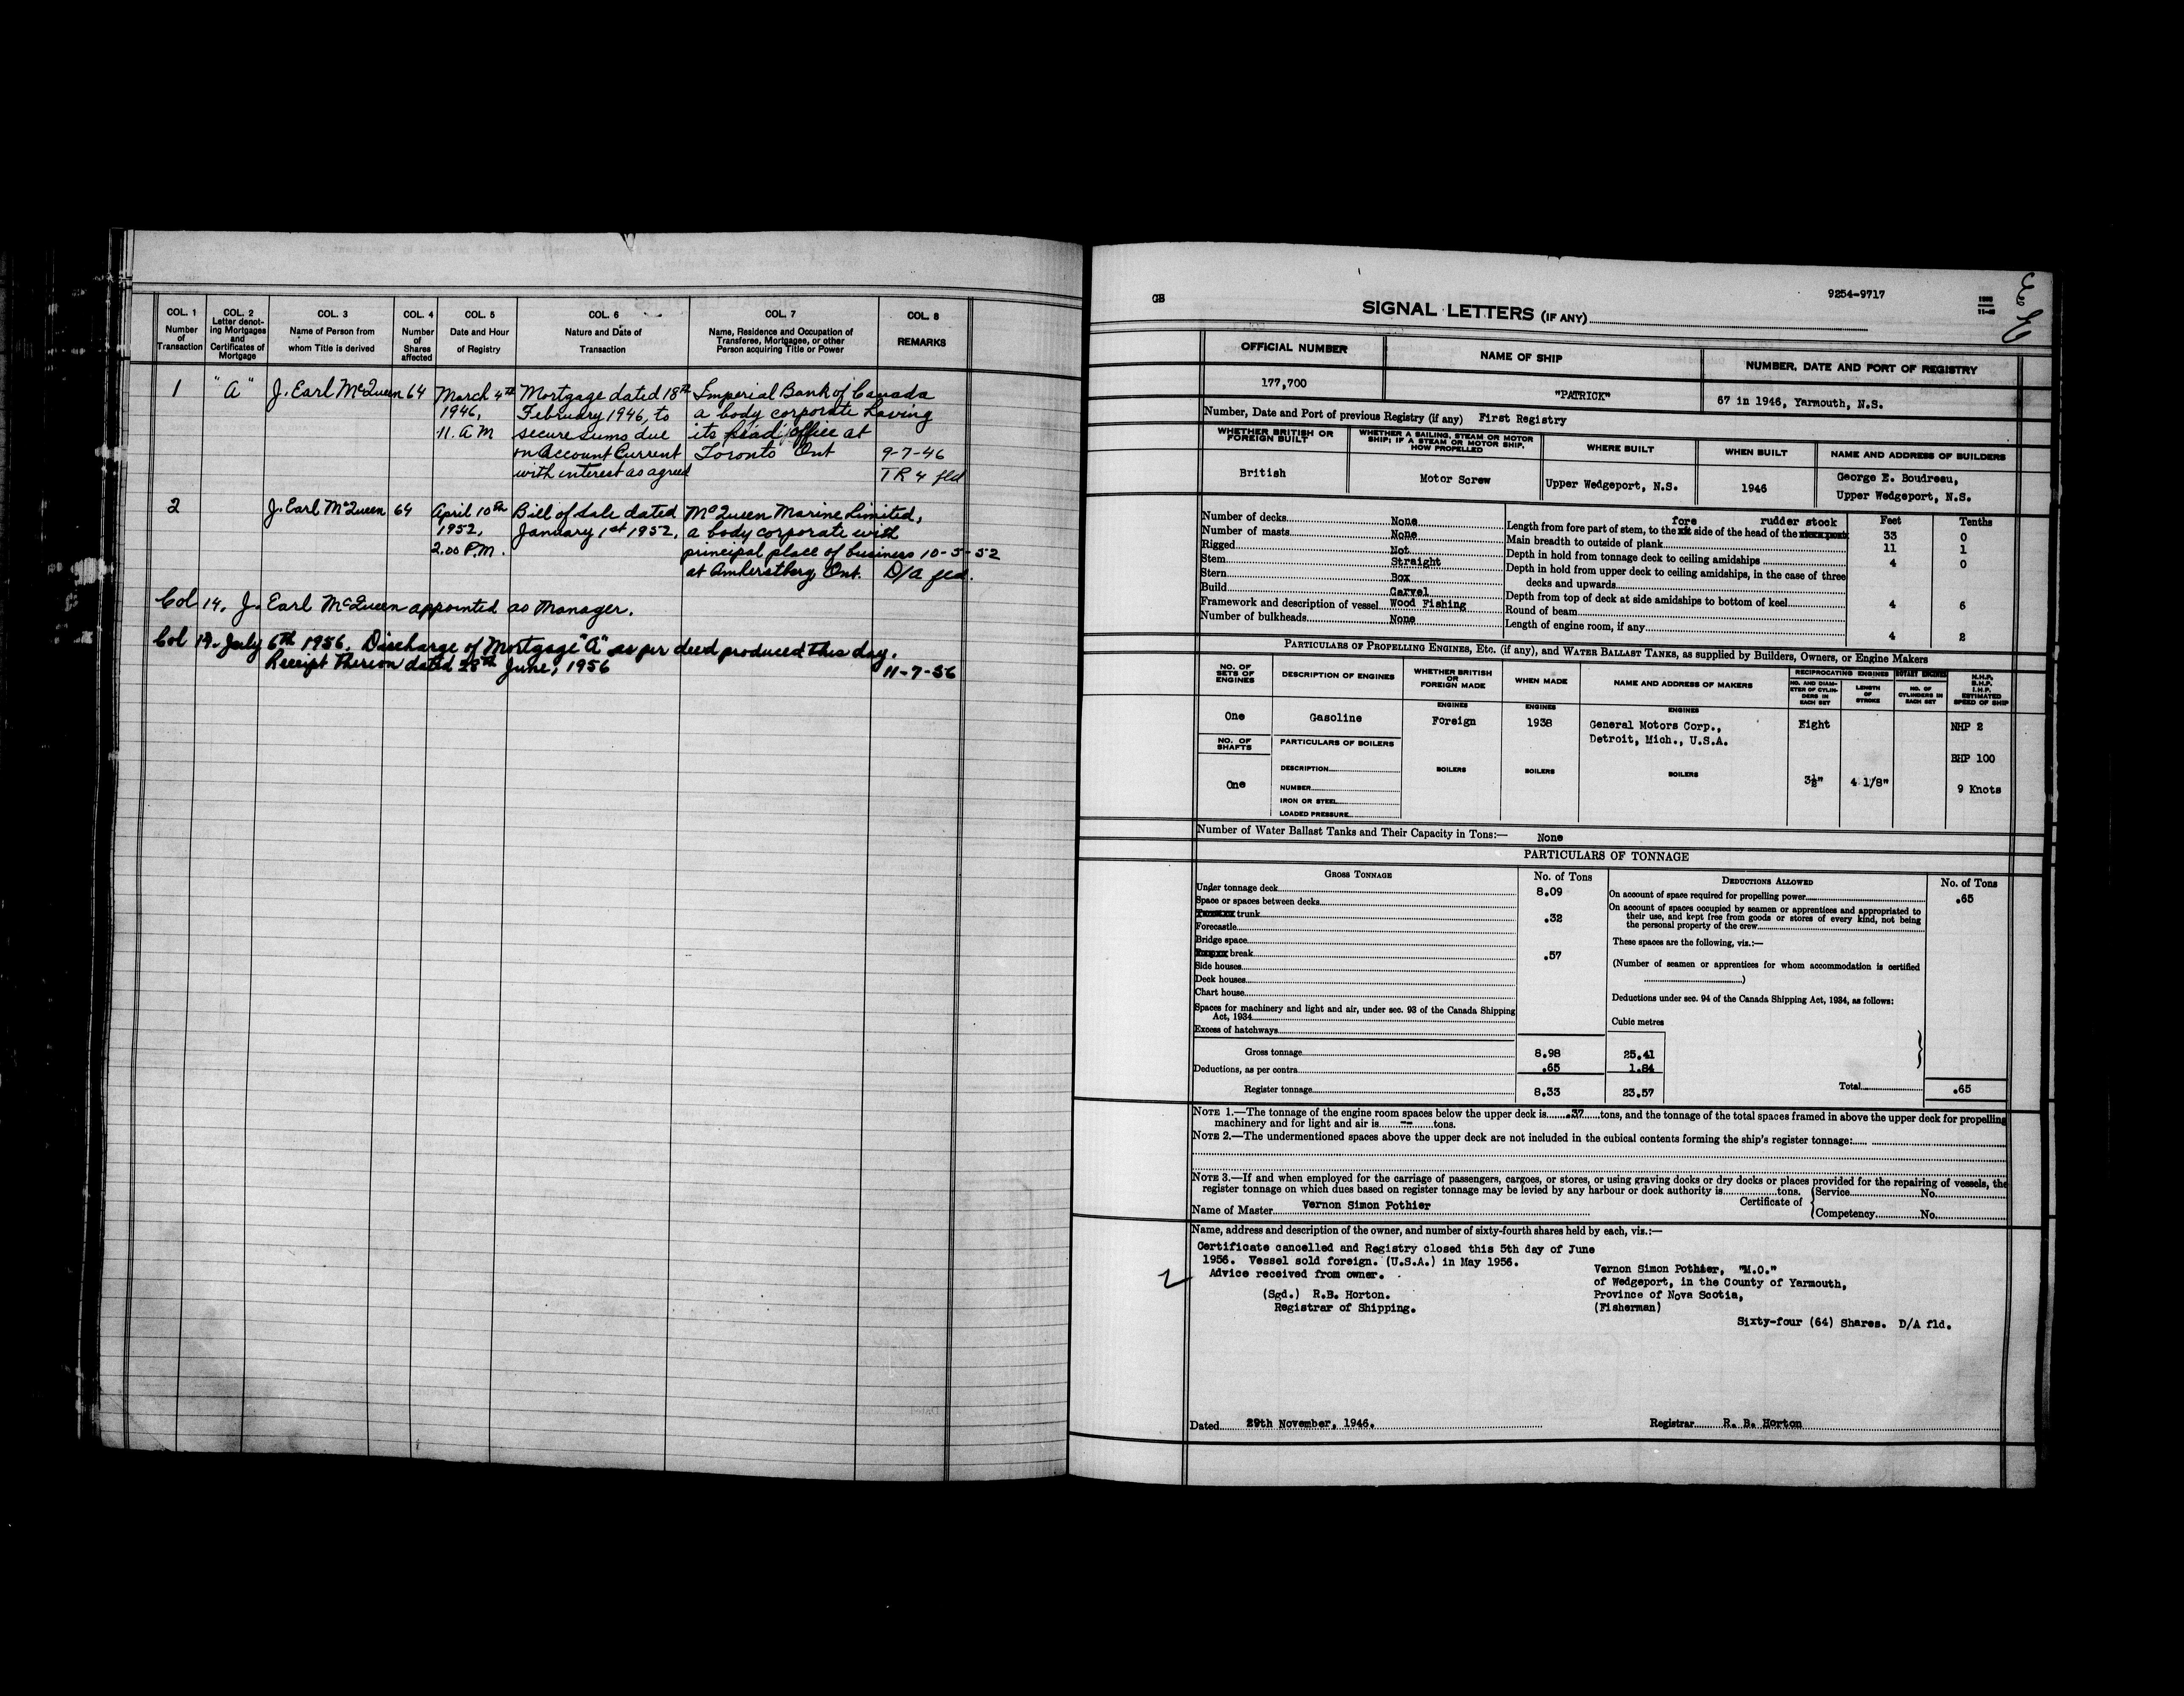 COL. 1 Number of Transaction
COL. 2 Letter denoting Mortgages and Certificates of Mortgage
COL. 3 Name of Person from whom Title is derived
COL. 4 Number of Shares affected
COL. 5 Date and Hour of Registry
COL. 6 Nature and Date of Transaction
COL. 7 Name, Residence and Occupation of Transferee, Mortgagee, or other Person acquiring Title or Power
COL. 8 REMARKS
1 "A" J. Earl McQueen 64 March 4th Mortgage dated 18th Imperial Bank of Canada
1946, February 1946, to a body corporate having
11. A M secure sums due its head office at
on Account Current Toronto Ont 9-7-46
with interest as agreed TR 4 fld
2 J. Earl McQueen 64 April 10th Bill of Sale dated McQueen Marine Limited,
1952, January 1st 1952, a body corporate with
2.00 P.M. principal place of business 10-5-52
at Amherstberg, Ont. D/A fld.
Col 14. J. Earl McQueen appointed as Manager.
Col 14. July 6th 1956. Discharge of Mortgage "A" as per deed produced this day.
Receipt thereon dated 28th June, 1956 11-7-56
GB
9254-9717
SIGNAL LETTERS (IF ANY)
OFFICIAL NUMBER NAME OF SHIP NUMBER, DATE AND PORT OF REGISTRY
177,700 "PATRICK" 67 in 1946, Yarmouth, N.S.
Number, Date and Port of previous Registry (if any) First Registry
WHETHER BRITISH OR FOREIGN BUILT
WHETHER A SAILING, STEAM OR MOTOR SHIP; IF A STEAM OR MOTOR SHIP, HOW PROPELLED
WHERE BUILT
WHEN BUILT
NAME AND ADDRESS OF BUILDERS
British Motor Screw Upper Wedgeport, N.S. 1946 George E. Boudreau,
Upper Wedgeport, N.S.
Number of decks None
Number of masts None
Rigged Not
Stem Straight
Stern Box
Build Carvel
Framework and description of vessel Wood Fishing
Number of bulkheads None
Feet Tenths
fore rudder stock
Length from fore part of stem, to the side of the head of the 33 0
Main breadth to outside of plank 11 1
Depth in hold from tonnage deck to ceiling amidships 4 0
Depth in hold from upper deck to ceiling amidships, in the case of three
decks and upwards
Depth from top of deck at side amidships to bottom of keel 4 6
Round of beam
Length of engine room, if any 4 2
PARTICULARS OF PROPELLING ENGINES, ETC. (if any), and WATER BALLAST TANKS, as supplied by Builders, Owners, or Engine Makers
NO. OF SETS OF ENGINES
DESCRIPTION OF ENGINES
WHETHER BRITISH OR FOREIGN MADE
WHEN MADE
NAME AND ADDRESS OF MAKERS
RECIPROCATING ENGINES
ROTARY ENGINES
NO. AND DIAMETER OF CYLINDERS IN EACH SET
LENGTH OF STROKE
NO. OF CYLINDERS IN EACH SET
N.H.P. B.H.P. I.H.P. ESTIMATED SPEED OF SHIP
ENGINES ENGINES ENGINES
One Gasoline Foreign 1938 General Motors Corp., Eight NHP 2
Detroit, Mich., U.S.A.
NO. OF SHAFTS PARTICULARS OF BOILERS
BHP 100
DESCRIPTION BOILERS BOILERS BOILERS
One 3½" 4 1/8" 9 Knots
NUMBER
IRON OR STEEL
LOADED PRESSURE
Number of Water Ballast Tanks and Their Capacity in Tons:— None
PARTICULARS OF TONNAGE
GROSS TONNAGE No. of Tons DEDUCTIONS ALLOWED No. of Tons
Under tonnage deck 8.09
Space or spaces between decks
trunk .32
Forecastle
Bridge space
break .57
Side houses
Deck houses
Chart house
Spaces for machinery and light and air, under sec. 93 of the Canada Shipping
Act, 1934
Excess of hatchways
On account of space required for propelling power .65
On account of spaces occupied by seamen or apprentices and appropriated to
their use, and kept free from goods or stores of every kind, not being
the personal property of the crew
These spaces are the following, viz.:—
(Number of seamen or apprentices for whom accommodation is certified
)
Deductions under sec. 94 of the Canada Shipping Act, 1934, as follows:
Cubic metres
Gross tonnage 8.98 25.41
Deductions, as per contra .65 1.84
Register tonnage 8.33 23.57 Total .65
NOTE 1.—The tonnage of the engine room spaces below the upper deck is .37 tons, and the tonnage of the total spaces framed in above the upper deck for propelling
machinery and for light and air is -- tons.
NOTE 2.—The undermentioned spaces above the upper deck are not included in the cubical contents forming the ship's register tonnage:
NOTE 3.—If and when employed for the carriage of passengers, cargoes, or stores, or using graving docks or dry docks or places provided for the repairing of vessels, the
register tonnage on which dues based on register tonnage may be levied by any harbour or dock authority is tons.
Name of Master Vernon Simon Pothier Certificate of Service No.
Competency No.
Name, address and description of the owner, and number of sixty-fourth shares held by each, viz.:—
Certificate cancelled and Registry closed this 5th day of June
1956. Vessel sold foreign. (U.S.A.) in May 1956.
Advice received from owner.
(Sgd.) R.B. Horton.
Registrar of Shipping.
Vernon Simon Pothier, "M.O."
of Wedgeport, in the County of Yarmouth,
Province of Nova Scotia,
(Fisherman)
Sixty-four (64) Shares. D/A fld.
Dated 29th November, 1946. Registrar R. B. Horton